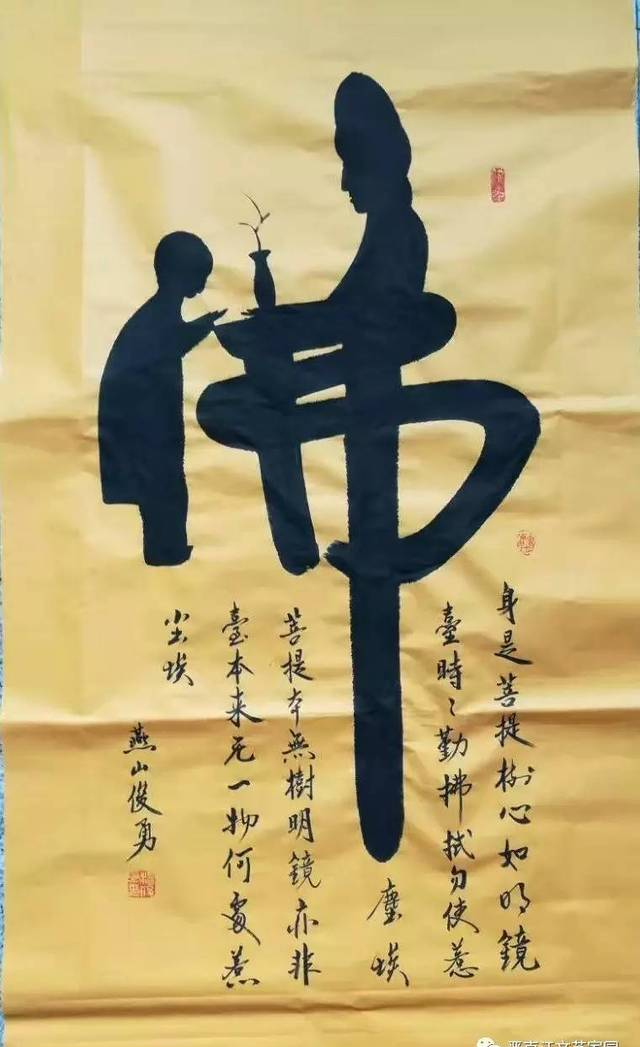 佛
身是菩提樹心如明鏡
臺時〻勤拂拭勿使惹
塵埃
菩提本無樹明鏡亦非
臺本来无一物何處惹
尘埃
燕山俊勇